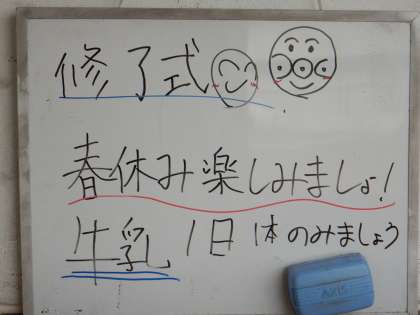 修了式
春休み楽しみましょ!
牛乳1日1本のみましょう
AXIS